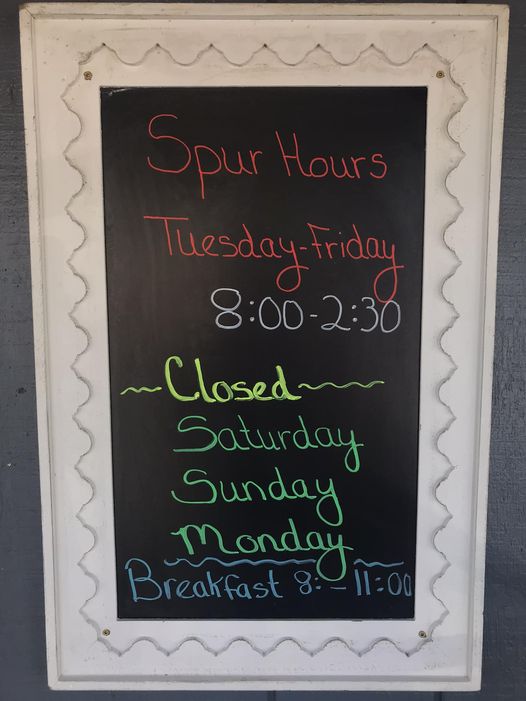 Spur Hours
Tuesday-Friday
8:00-2:30
~Closed~
Saturday
Sunday
Monday
Breakfast 8:-11:00